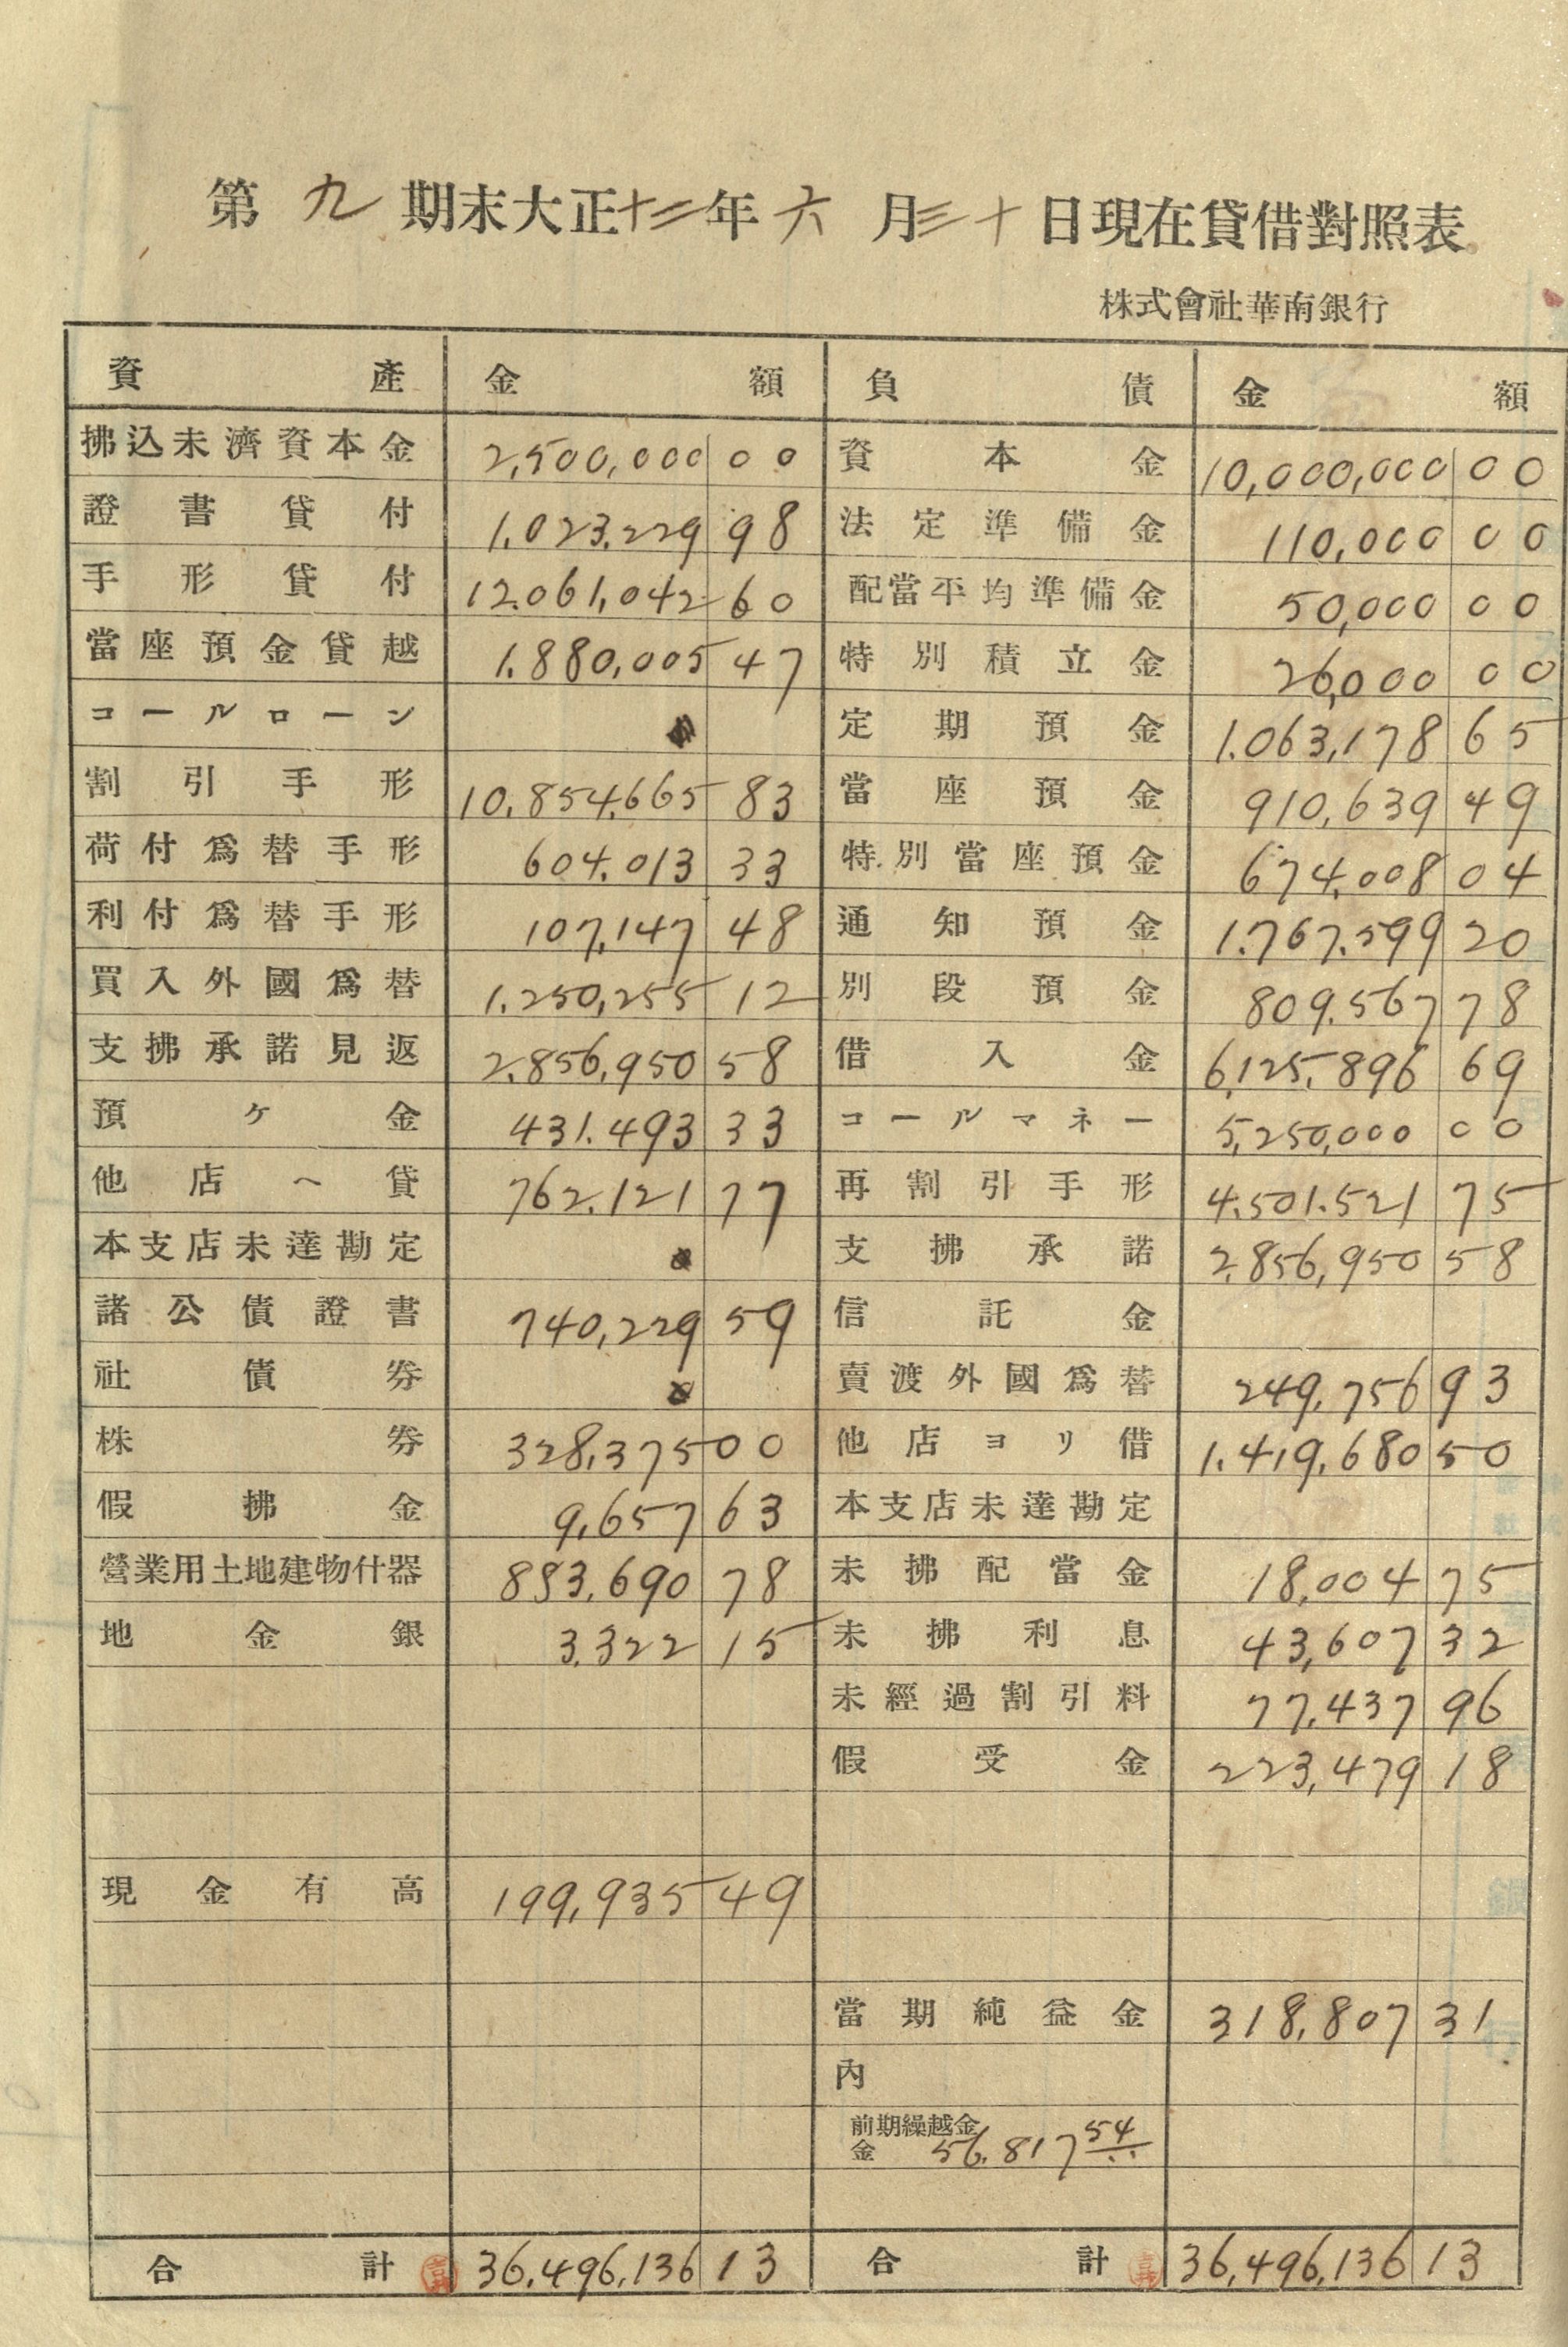 第九期末大正十二年六月三十日現在貸借對照表
株式會社華南銀行
資產 金額 負債 金額
拂込未濟資本金 2,500,000 00 資本金 10,000,000 00
證書貸付 1.023.229 98 法定準備金 110,000 00
手形貸付 12.061,042 60 配當平均準備金 50,000 00
當座預金貸越 1.880,005 47 特別積立金 26,000 00
コールローン 定期預金 1.063,178 65
割引手形 10.854.665 83 當座預金 910,639 49
荷付爲替手形 604.013 33 特別當座預金 674,008 04
利付爲替手形 107,147 48 通知預金 1.767.599 20
買入外國爲替 1.250,255 12 別段預金 809.567 78
支拂承諾見返 2.856,950 58 借入金 6,125,896 69
預ケ金 431.493 33 コールマネー 5,250,000 00
他店ヘ貸 762.121 77 再割引手形 4.501.521 75
本支店未達勘定 支拂承諾 2,856,950 58
諸公債證書 740,229 59 信託金
社債券 賣渡外國爲替 249,756 93
株券 328,375 00 他店ヨリ借 1.419,680 50
假拂金 9,657 63 本支店未達勘定
營業用土地建物什器 883,690 78 未拂配當金 18,004 75
地金銀 3.322 15 未拂利息 43,607 32
未經過割引料 77,437 96
假受金 223,479 18
現金有高 199,935 49
當期純益金 318,807 31
內
前期繰越金
金 56.817 54
合計 36.496,136 13 合計 36,496,136 13